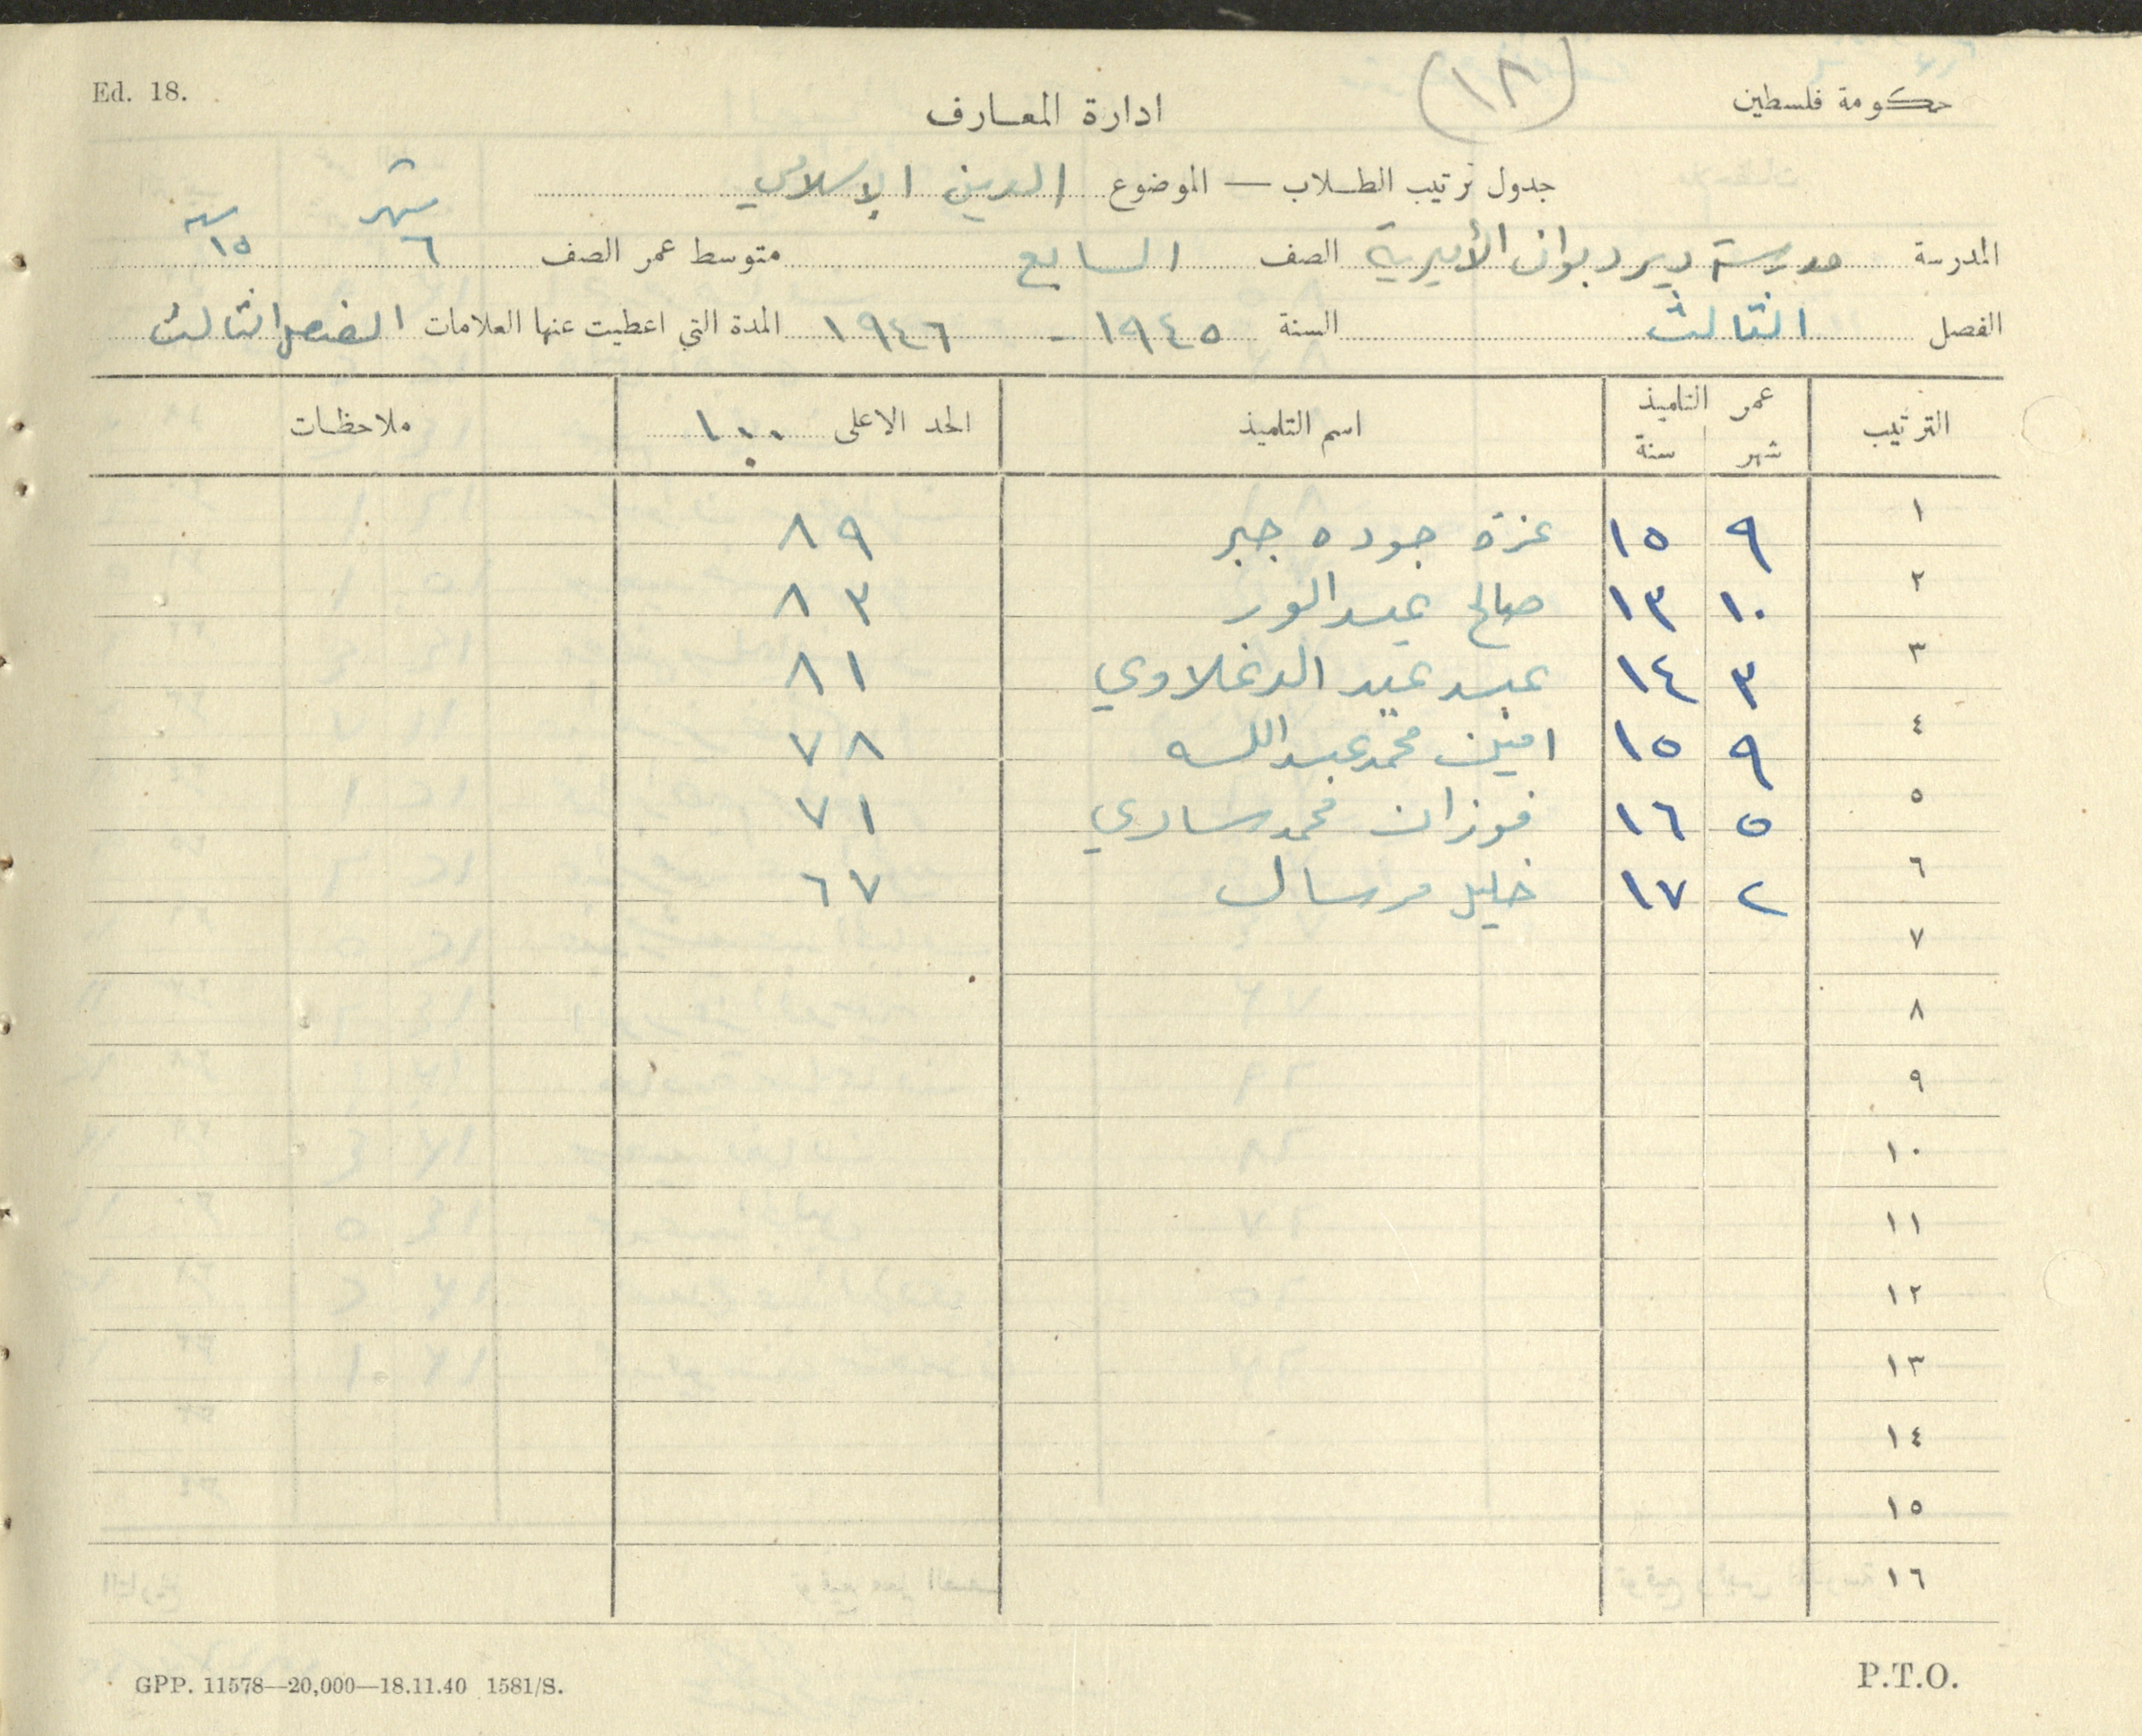 Ed. 18.
(١٨)
حكومة فلسطين
ادارة المعارف
جدول ترتيب الطلاب — الموضوع الدين الإسلامي
المدرسة مدرسة ديردبوان الأميرية الصف السابع متوسط عمر الصف ٦ شهر ١٥ سنة
الفصل الثالث السنة ١٩٤٥ - ١٩٤٦ المدة التي اعطيت عنها العلامات الفصل الثالث
الترتيب عمر التلميذ اسم التلميذ الحد الاعلى ١٠٠ ملاحظات
شهر سنة
١ ٩ ١٥ عزة جوده جبر ٨٩
٢ ١٠ ١٣ صالح عبد النور ٨٣
٣ ٣ ١٤ عبد عيد الدغلاوي ٨١
٤ ٩ ١٥ امين محمد عبد الله ٧٨
٥ ٥ ١٦ فوزان محمد ساري ٧١
٦ ٢ ١٧ خليل مرسال ٦٧
٧
٨
٩
١٠
١١
١٢
١٣
١٤
١٥
١٦
GPP. 11578—20,000—18.11.40 1581/S.
P.T.O.